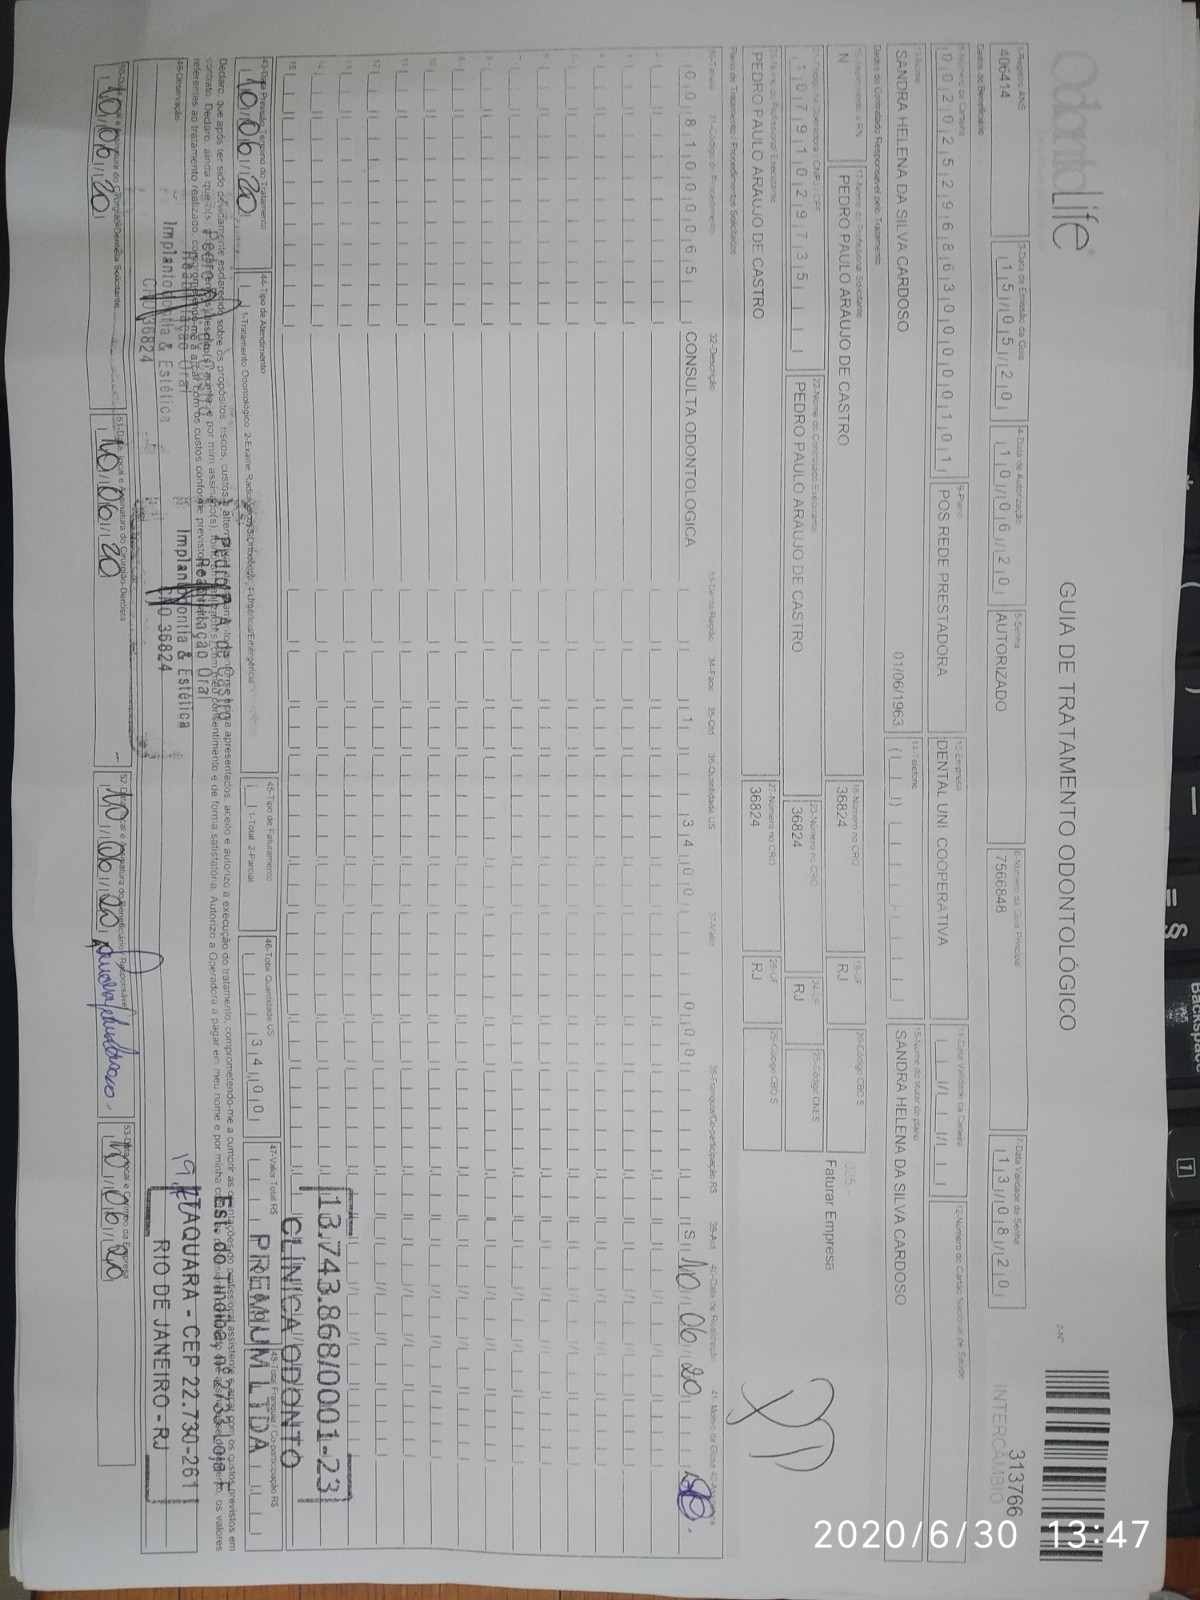 OdontoLife
GUIA DE TRATAMENTO ODONTOLÓGICO
2-Nº
313766
INTERCÂMBIO
1-Registro ANS
406414
3-Data de Emissão da Guia
15/05/20
4-Data de Autorização
10/06/20
5-Senha
AUTORIZADO
6-Número da Guia Principal
7566848
7-Data Validade da Senha
13/08/20
Dados do Beneficiário
8-Número da Carteira
00202529686300000101
9-Plano
POS REDE PRESTADORA
10-Empresa
DENTAL UNI COOPERATIVA
11-Data Validade da Carteira
12-Número do Cartão Nacional de Saúde
13-Nome
SANDRA HELENA DA SILVA CARDOSO
01/06/1963
14-Telefone
15-Nome do titular do plano
SANDRA HELENA DA SILVA CARDOSO
Dados do Contratado Responsável pelo Tratamento
N
17-Nome do Profissional Solicitante
PEDRO PAULO ARAUJO DE CASTRO
18-Número no CRO
36824
19-UF
RJ
20-Código CBO S
025 -
Faturar Empresa
10791029735
22-Nome do Contratado Executante
PEDRO PAULO ARAUJO DE CASTRO
23-Número no CRO
36824
24-UF
RJ
25-Código CNES
26-Nome do Profissional Executante
PEDRO PAULO ARAUJO DE CASTRO
27-Número no CRO
36824
28-UF
RJ
29-Código CBO S
Plano de Tratamento / Procedimentos Solicitados
30-Tabela 31-Código do Procedimento 32-Descrição 33-Dente/Região 34-Face 35-Qtd 36-Quantidade US 37-Valor 38-Franquia/Co-participação R$ 39-Aut 40-Data de Realização 41-Motivo da Glosa
0081000065 CONSULTA ODONTOLOGICA 1 34 00 0 00 S 10 06 20
43-Data Prevista Término do Tratamento
10/06/20
44-Tipo de Atendimento
1-Tratamento Odontológico 2-Exame Radiológico 3-Ortodontia 4-Urgência/Emergência
45-Tipo de Faturamento
1-Total 2-Parcial
46-Total Quantidade US
34 00
47-Valor Total R$
48-Total Franquia / Co-participação R$
Declaro, que após ter sido devidamente esclarecido sobre os propósitos, riscos, custos e alternativas de tratamento, conforme acima apresentados, aceito e autorizo a execução do tratamento, comprometendo-me a cumprir as orientações do profissional assistente e arcar com os custos previstos em
49-Observação
13.743.868/0001-23
CLÍNICA ODONTO
PREMIUM LTDA
Est. do Tindiba, nº 2733 Loja F
TAQUARA - CEP 22.730-261
RIO DE JANEIRO - RJ
Reabilitação Oral
Implantodontia & Estética
CRO 36824
Pedro P. A. de Castro
Reabilitação Oral
Implantodontia & Estética
CRO 36824
10/06/20
51-Data, local e Assinatura do Cirurgião-Dentista
10/06/20
10/06/20
10/06/20
Backspace
2020/6/30 13:47